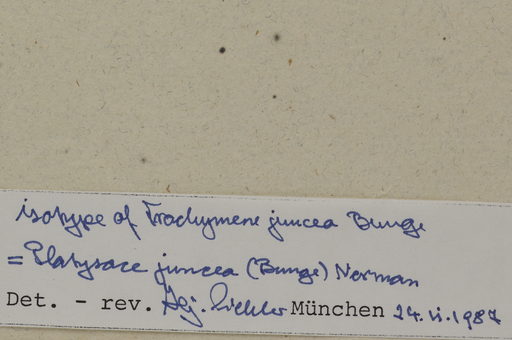 isotype of Trachymene juncea Bunge
= Platysace juncea (Bunge) Norman
Det. - rev. München 24.vi.1987